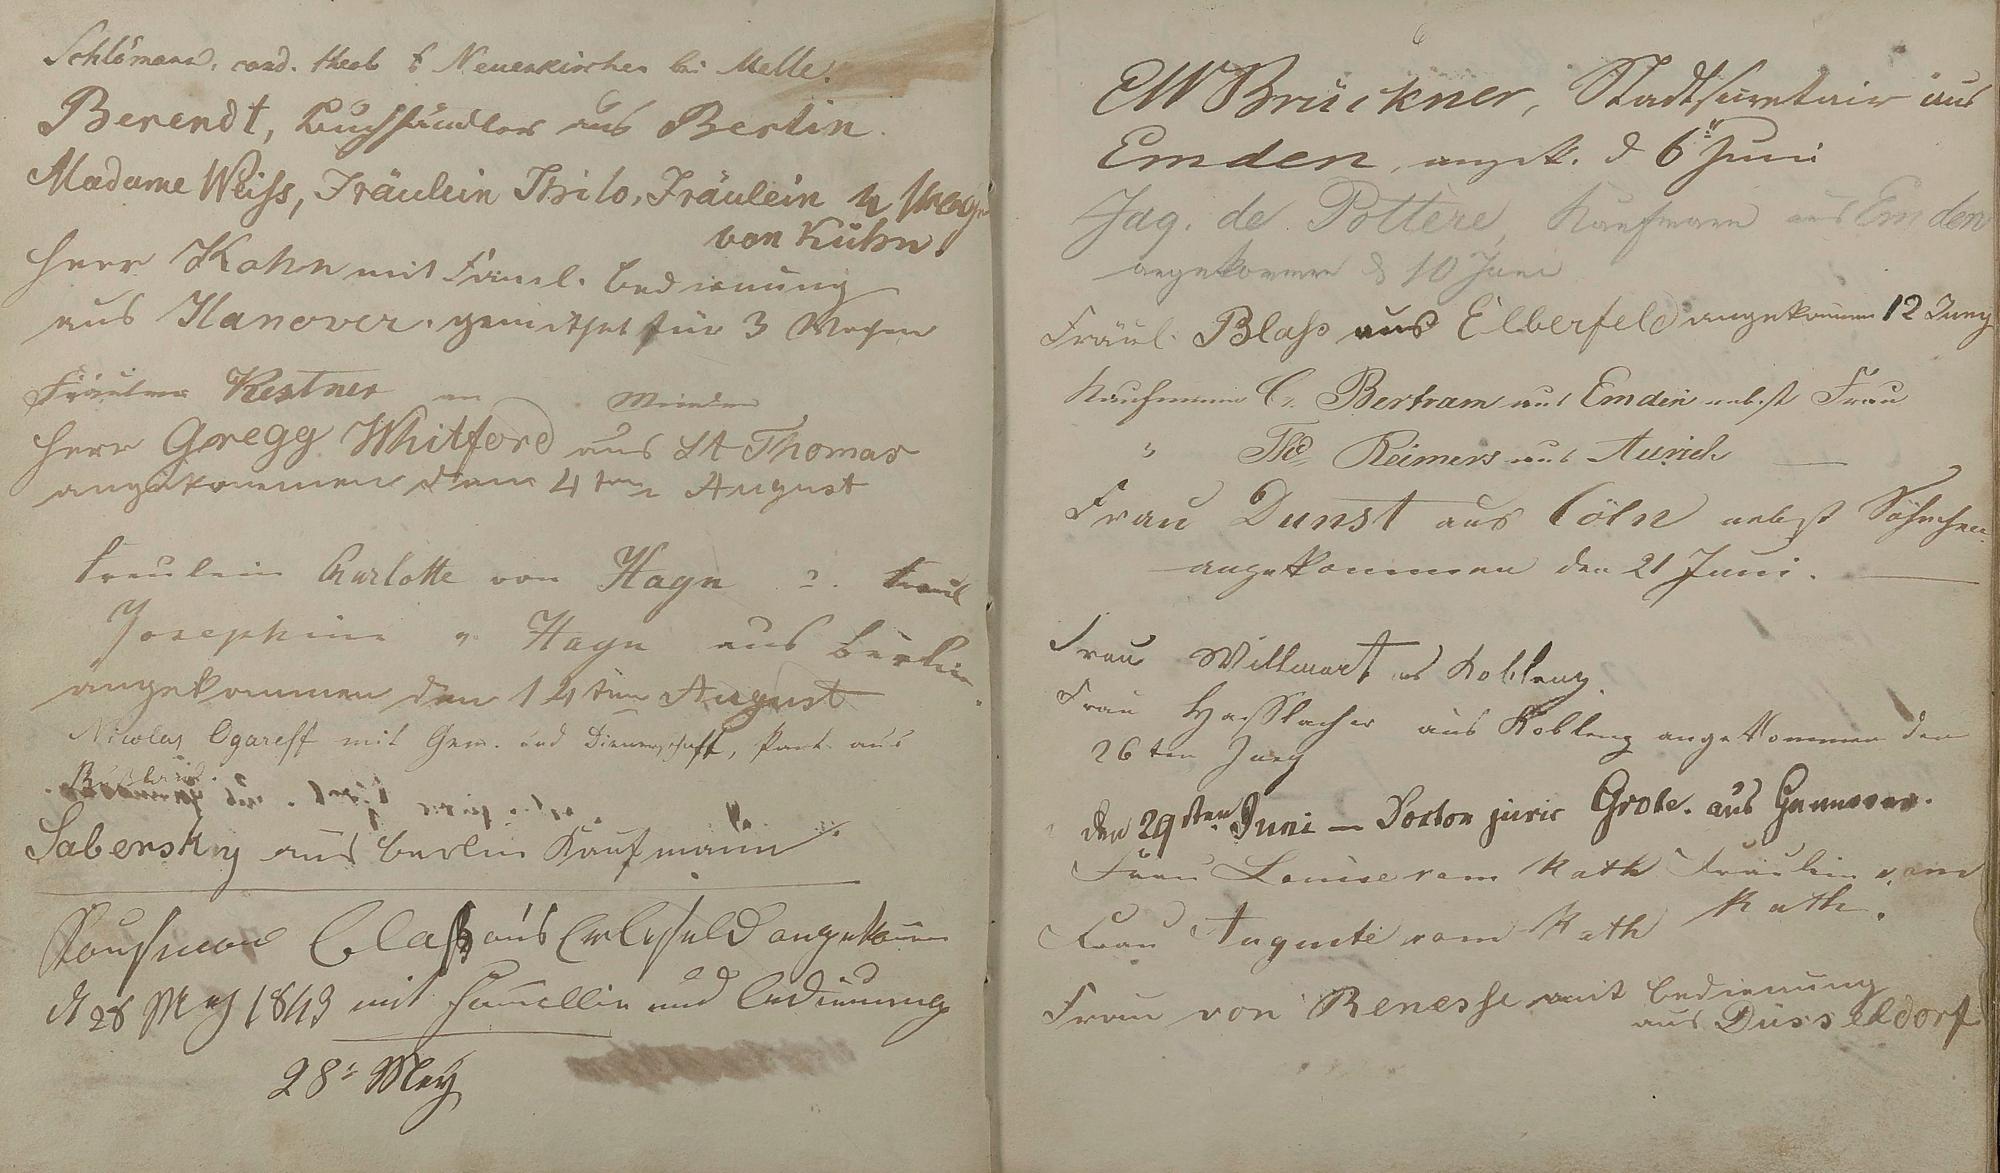 Schlömann, cand. theol. Neuenkirchen bei Melle.
Berendt, Buchhändler aus Berlin.
Madame Weiss, Fräulein Thilo, Fräulein
von Kühn.
Herr Kohn mit Famil. Bedienung
aus Hanover. gemiethet für 3 Wochen
Fräulein Kestner
Herr Gregg Whitford aus St Thomas
angekommen den 4ten August
Freulein Charlotte von Hagn
Josephine v Hagn aus Berlin
angekommen den 14ten August
Nicolas Ogareff mit Gem. und Dienerschaft, Part. aus
Rußland.
Sabersky aus Berlin Kaufmann
Kaufman Blaß aus Elberfeld angekomen
d 28 Mey 1843 mit Famellie und Bedienung
28 Mey
EW Brückner, Stadtsecretair aus
Emden, angek. d 6 Juni
Jaq. de Pottere, Kaufmann aus Emden
angekommen d 10 Juni
Fräul. Blaß aus Elberfeld angekommen 12 Juny
Kaufmann C. Bertram aus Emden nebst Frau
" Reimers aus Aurich
Frau Dunst aus Cöln nebst Söhnchen
angekommen den 21 Juni.
Frau aus Koblenz.
Frau Hasslacher aus Koblenz angekommen den
26ten Juny
den 29sten Juni — Doctor juris Grote. aus Hannover.
Frau Louise vom Rath Fräulein vom
Rath.
Frau Auguste vom Rath
Frau von Renesse mit Bedienung
aus Düsseldorf